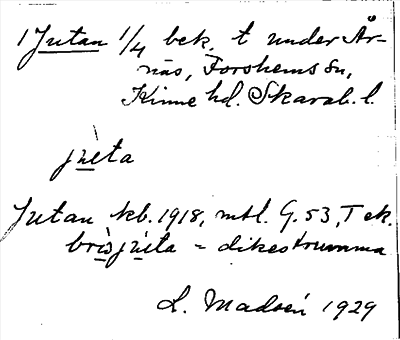 1 Jutan 1/4 bek. t under År-
näs, Forshems sn,
Kinne hd. Skarab. l.
jùeta
Jutan kb. 1918, mtl. G. 53, T ek.
= dikestrumma
L. Madsén 1929